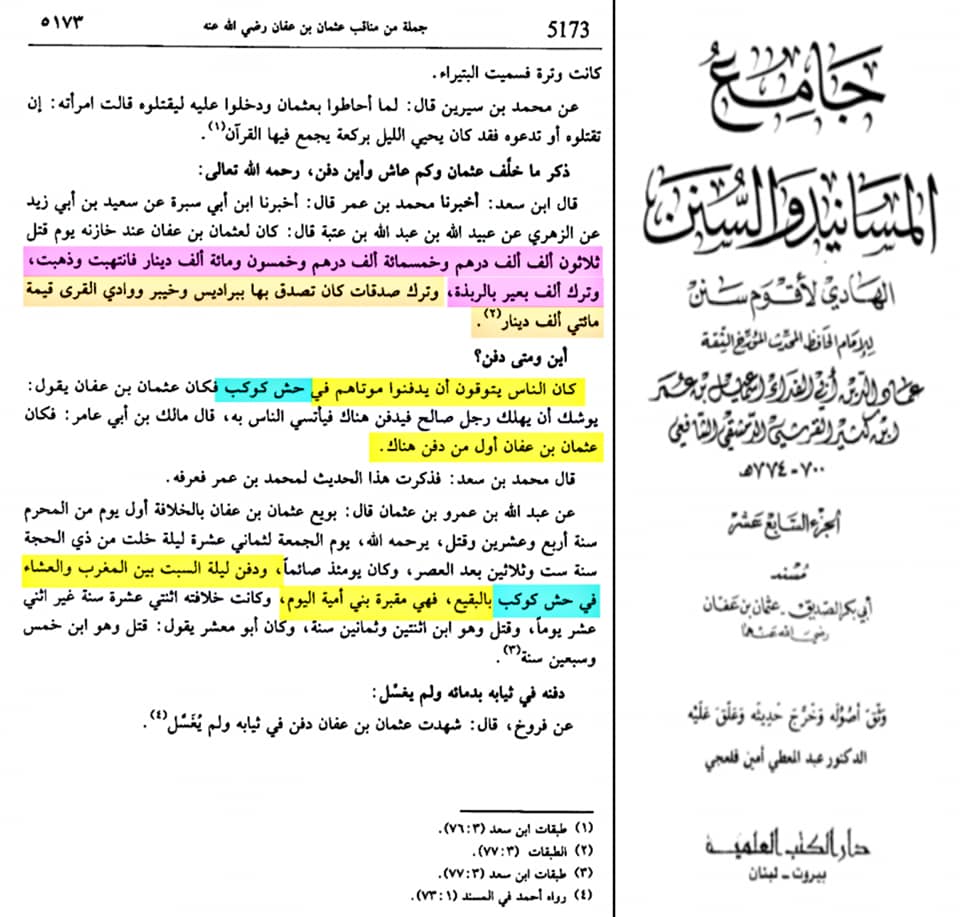 5173
جملة من مناقب عثمان بن عفان رضي الله عنه
٥١٧٣
كانت وترة فسميت البتيراء.
عن محمد بن سيرين قال: لما أحاطوا بعثمان ودخلوا عليه ليقتلوه قالت امرأته: إن
تقتلوه أو تدعوه فقد كان يحيي الليل بركعة يجمع فيها القرآن(١).
ذكر ما خلَّف عثمان وكم عاش وأين دفن، رحمه الله تعالى:
قال ابن سعد: أخبرنا محمد بن عمر قال: أخبرنا ابن أبي سبرة عن سعيد بن أبي زيد
عن الزهري عن عبيد الله بن عبد الله بن عتبة قال: كان لعثمان بن عفان عند خازنه يوم قتل
ثلاثون ألف ألف درهم وخمسمائة ألف درهم وخمسون ومائة ألف دينار فانتهبت وذهبت،
وترك ألف بعير بالربذة، وترك صدقات كان تصدق بها ببراديس وخيبر ووادي القرى قيمة
مائتي ألف دينار(٢).
أين ومتى دفن؟
كان الناس يتوقون أن يدفنوا موتاهم في حش كوكب فكان عثمان بن عفان يقول:
يوشك أن يهلك رجل صالح فيدفن هناك فيأتسي الناس به، قال مالك بن أبي عامر: فكان
عثمان بن عفان أول من دفن هناك.
قال محمد بن سعد: فذكرت هذا الحديث لمحمد بن عمر فعرفه.
عن عبد الله بن عمرو بن عثمان قال: بويع عثمان بن عفان بالخلافة أول يوم من المحرم
سنة أربع وعشرين وقتل، يرحمه الله، يوم الجمعة لثماني عشرة ليلة خلت من ذي الحجة
سنة ست وثلاثين بعد العصر، وكان يومئذ صائماً، ودفن ليلة السبت بين المغرب والعشاء
في حش كوكب بالبقيع، فهي مقبرة بني أمية اليوم، وكانت خلافته اثنتي عشرة سنة غير اثني
عشر يوماً، وقتل وهو ابن اثنتين وثمانين سنة، وكان أبو معشر يقول: قتل وهو ابن خمس
وسبعين سنة(٣).
دفنه في ثيابه بدمائه ولم يغسَّل:
عن فروخ، قال: شهدت عثمان بن عفان دفن في ثيابه ولم يُغَسَّل(٤).
(١) طبقات ابن سعد (٣:٧٦).
(٢) الطبقات (٣:٧٧).
(٣) طبقات ابن سعد (٣:٧٧).
(٤) رواه أحمد في المسند (١:٧٣).
جَامِعُ
المسَانيد والسُّنَن
الهَادي لأقوَم سَنَن
للإمام الحافظ المحدّث المؤرّخ الثقة
عماد الدين أبي الفداء إسماعيل بن عمر
ابن كثير القرشي الدمشقي الشافعي
٧٠٠ - ٧٧٤ هـ
الجزء السَّابع عَشَر
مُسْنَد
أبي بكر الصديق - عثمان بن عفان
رضي الله عنهما
وَثَّقَ أصُولَه وَخَرَّجَ حَدِيثَه وَعَلَّقَ عَلَيْه
الدكتور عبد المعطي أمين قلعجي
دار الكتب العلمية
بيروت - لبنان